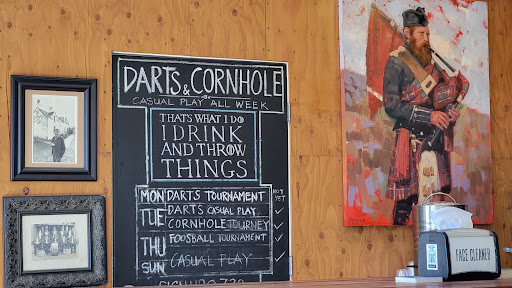 DARTS & CORNHOLE
CASUAL PLAY ALL WEEK
THAT'S WHAT I DO
I DRINK
AND THROW
THINGS
NOT YET
MON DARTS TOURNAMENT
TUE DARTS CASUAL PLAY
CORNHOLE TOURNEY
THU FOOSBALL TOURNAMENT
SUN CASUAL PLAY
SIGNUPS 7:30
FACE CLEANER